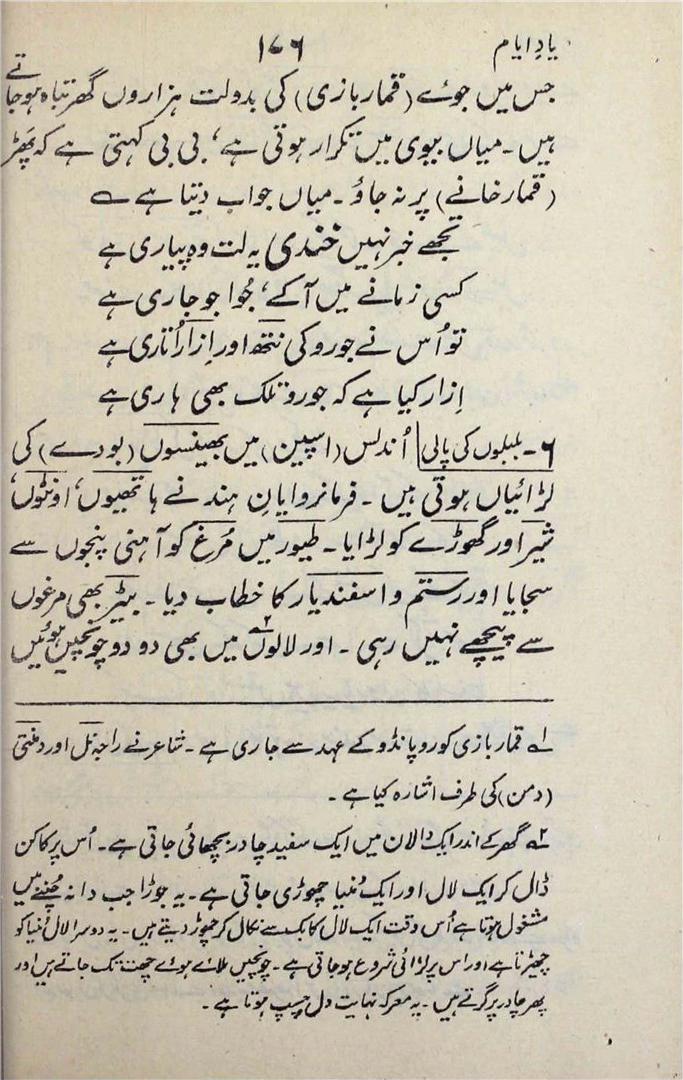 یادِ ایام ۱۷۶
جس میں جوئے (قمار بازی) کی بدولت ہزاروں گھر تباہ ہو جاتے
ہیں ۔ میاں بیوی میں تکرار ہوتی ہے، بی بی کہتی ہے کہ پھَڑ
(قمار خانے) پر نہ جاؤ ۔ میاں جواب دیتا ہے ؎
تجھے خبر نہیں خندی یہ لت وہ پیاری ہے
کسی زمانے میں آ کے، جُوا جو جاری ہے
تو اُس نے جورو کی نتھ اور اِزار اُتاری ہے
اِزار کیا ہے کہ جورو تلک بھی ہاری ہے
۶ - بلبلوں کی پالی اُندلس (اسپین) میں بھینسوں (بودے) کی
لڑائیاں ہوتی ہیں ۔ فرمانروایانِ ہند نے ہاتھیوں، اونٹوں،
شیر اور گھوڑے کو لڑایا ۔ طیور میں مُرغ کو آہنی پنجوں سے
سجایا اور رستم و اسفندیار کا خطاب دیا ۔ بٹیر بھی مرغوں
سے پیچھے نہیں رہی ۔ اور لالوں۲؎ میں بھی دو دو چونچیں ہوئیں
۱؎ قمار بازی کورو پانڈو کے عہد سے جاری ہے ۔ شاعر نے راجہ نل اور دمنتی
(دمن) کی طرف اشارہ کیا ہے ۔
۲؎ گھر کے اندر ایک دالان میں ایک سفید چادر بچھائی جاتی ہے ۔ اُس پر کاکن
ڈال کر ایک لال اور ایک مُنیا چھوڑی جاتی ہے ۔ یہ جوڑا جب دانہ چُننے میں
مشغول ہوتا ہے اُس وقت ایک لال کابک سے نکال کر چھوڑ دیتے ہیں ۔ یہ دوسرا لال مُنیا کو
چھیڑتا ہے اور اس پر لڑائی شروع ہو جاتی ہے ۔ چونچیں ملائے ہوئے چھت تک جاتے ہیں اور
پھر چادر پر گرتے ہیں ۔ یہ معرکہ نہایت دل چسپ ہوتا ہے ۔